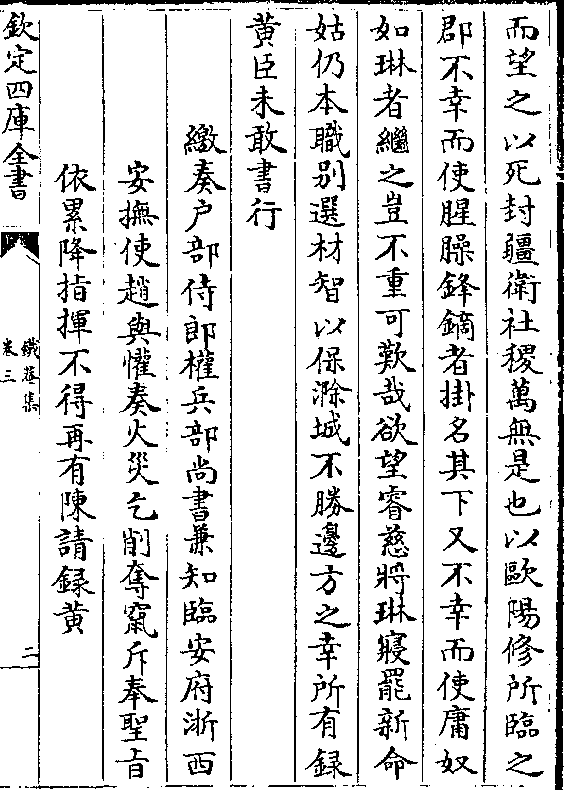 而望之以死封疆衛社稷萬無是也以歐陽修所臨之
郡不幸而使腥臊鋒鏑者掛名其下又不幸而使庸奴
如琳者繼之豈不重可歎哉欲望睿慈將琳寢罷新命
姑仍本職别選材智以保滁城不勝邊方之幸所有録
黄臣未敢書行
繳奏户部侍郎權兵部尚書兼知臨安府浙西
安撫使趙與懽奏火災乞削奪竄斥奉聖旨
依累降指揮不得再有陳請録黄
欽定四庫全書
鐵菴集
卷三
二